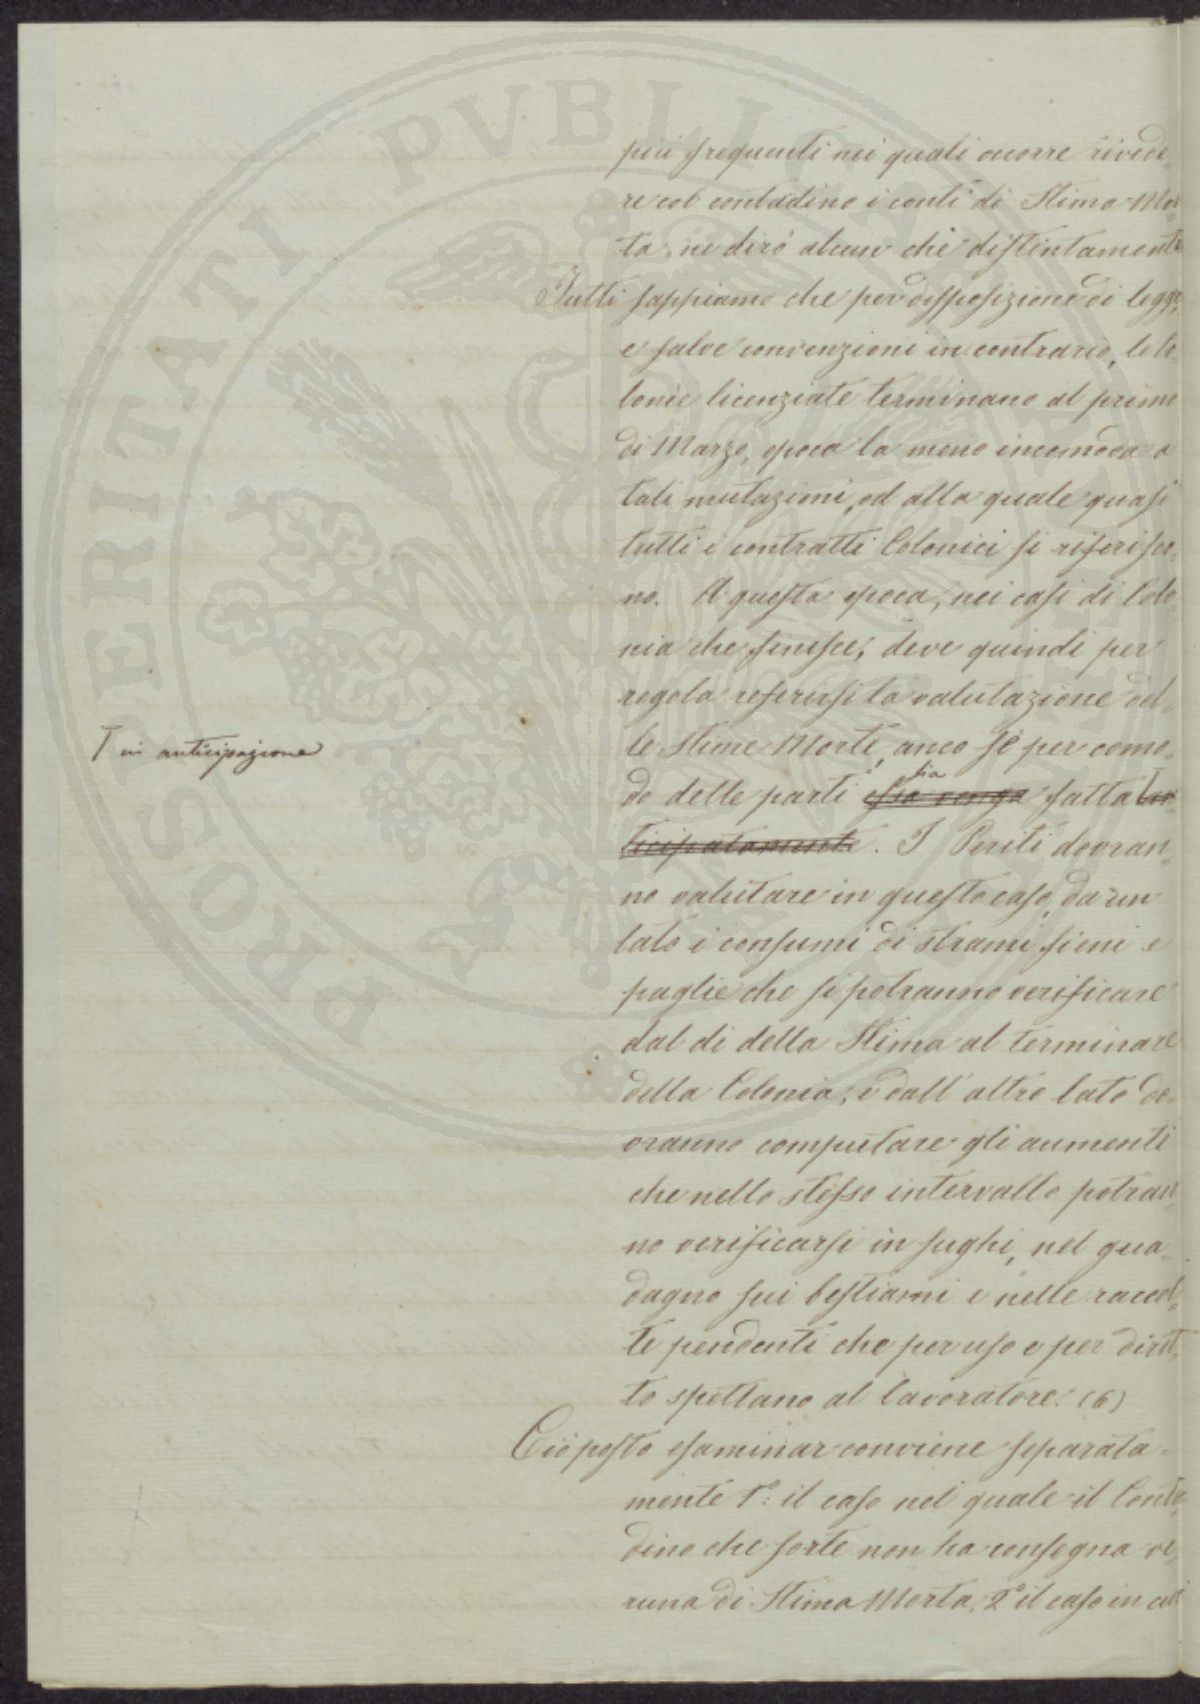 PROSPERITATI PVBLICAE
più frequenti nei quali occorre rivede-
re col contadino i conti di Stima Mor-
ta, ne dirò alcun chè distintamente
Tutti sappiamo che per disposizione di legge,
e salve convenzioni in contrario, le Co-
lonie licenziate terminano al primo
di Marzo, epoca la meno incomoda a
tali mutazioni, ed alla quale quasi
tutti i contratti Colonici si riferisco-
no. A questa epoca, nei casi di Colo-
nia che finisce, deve quindi per
regola referirsi la valutazione del-
le Stime Morte, anco se per como-
T in anticipazione
sia
do delle parti essa venga fatta an-
ticipatamente. I Periti dovran-
no valutare in questo caso, da un
lato i consumi di strami fieni e
paglie che si potranno verificare
dal dì della Stima al terminare
della Colonia, e dall'altro lato do-
vranno computare gli aumenti
che nello stesso intervallo potran-
no verificarsi in sughi, nel gua-
dagno sui bestiami e nelle raccol-
te pendenti che per uso e per dirit-
to spettano al lavoratore. (6)
Ciò posto esaminar conviene separata-
mente 1.° il caso nel quale il Conta-
dino che sorte non ha consegna ve-
runa di Stima Morta, 2° il caso in cui